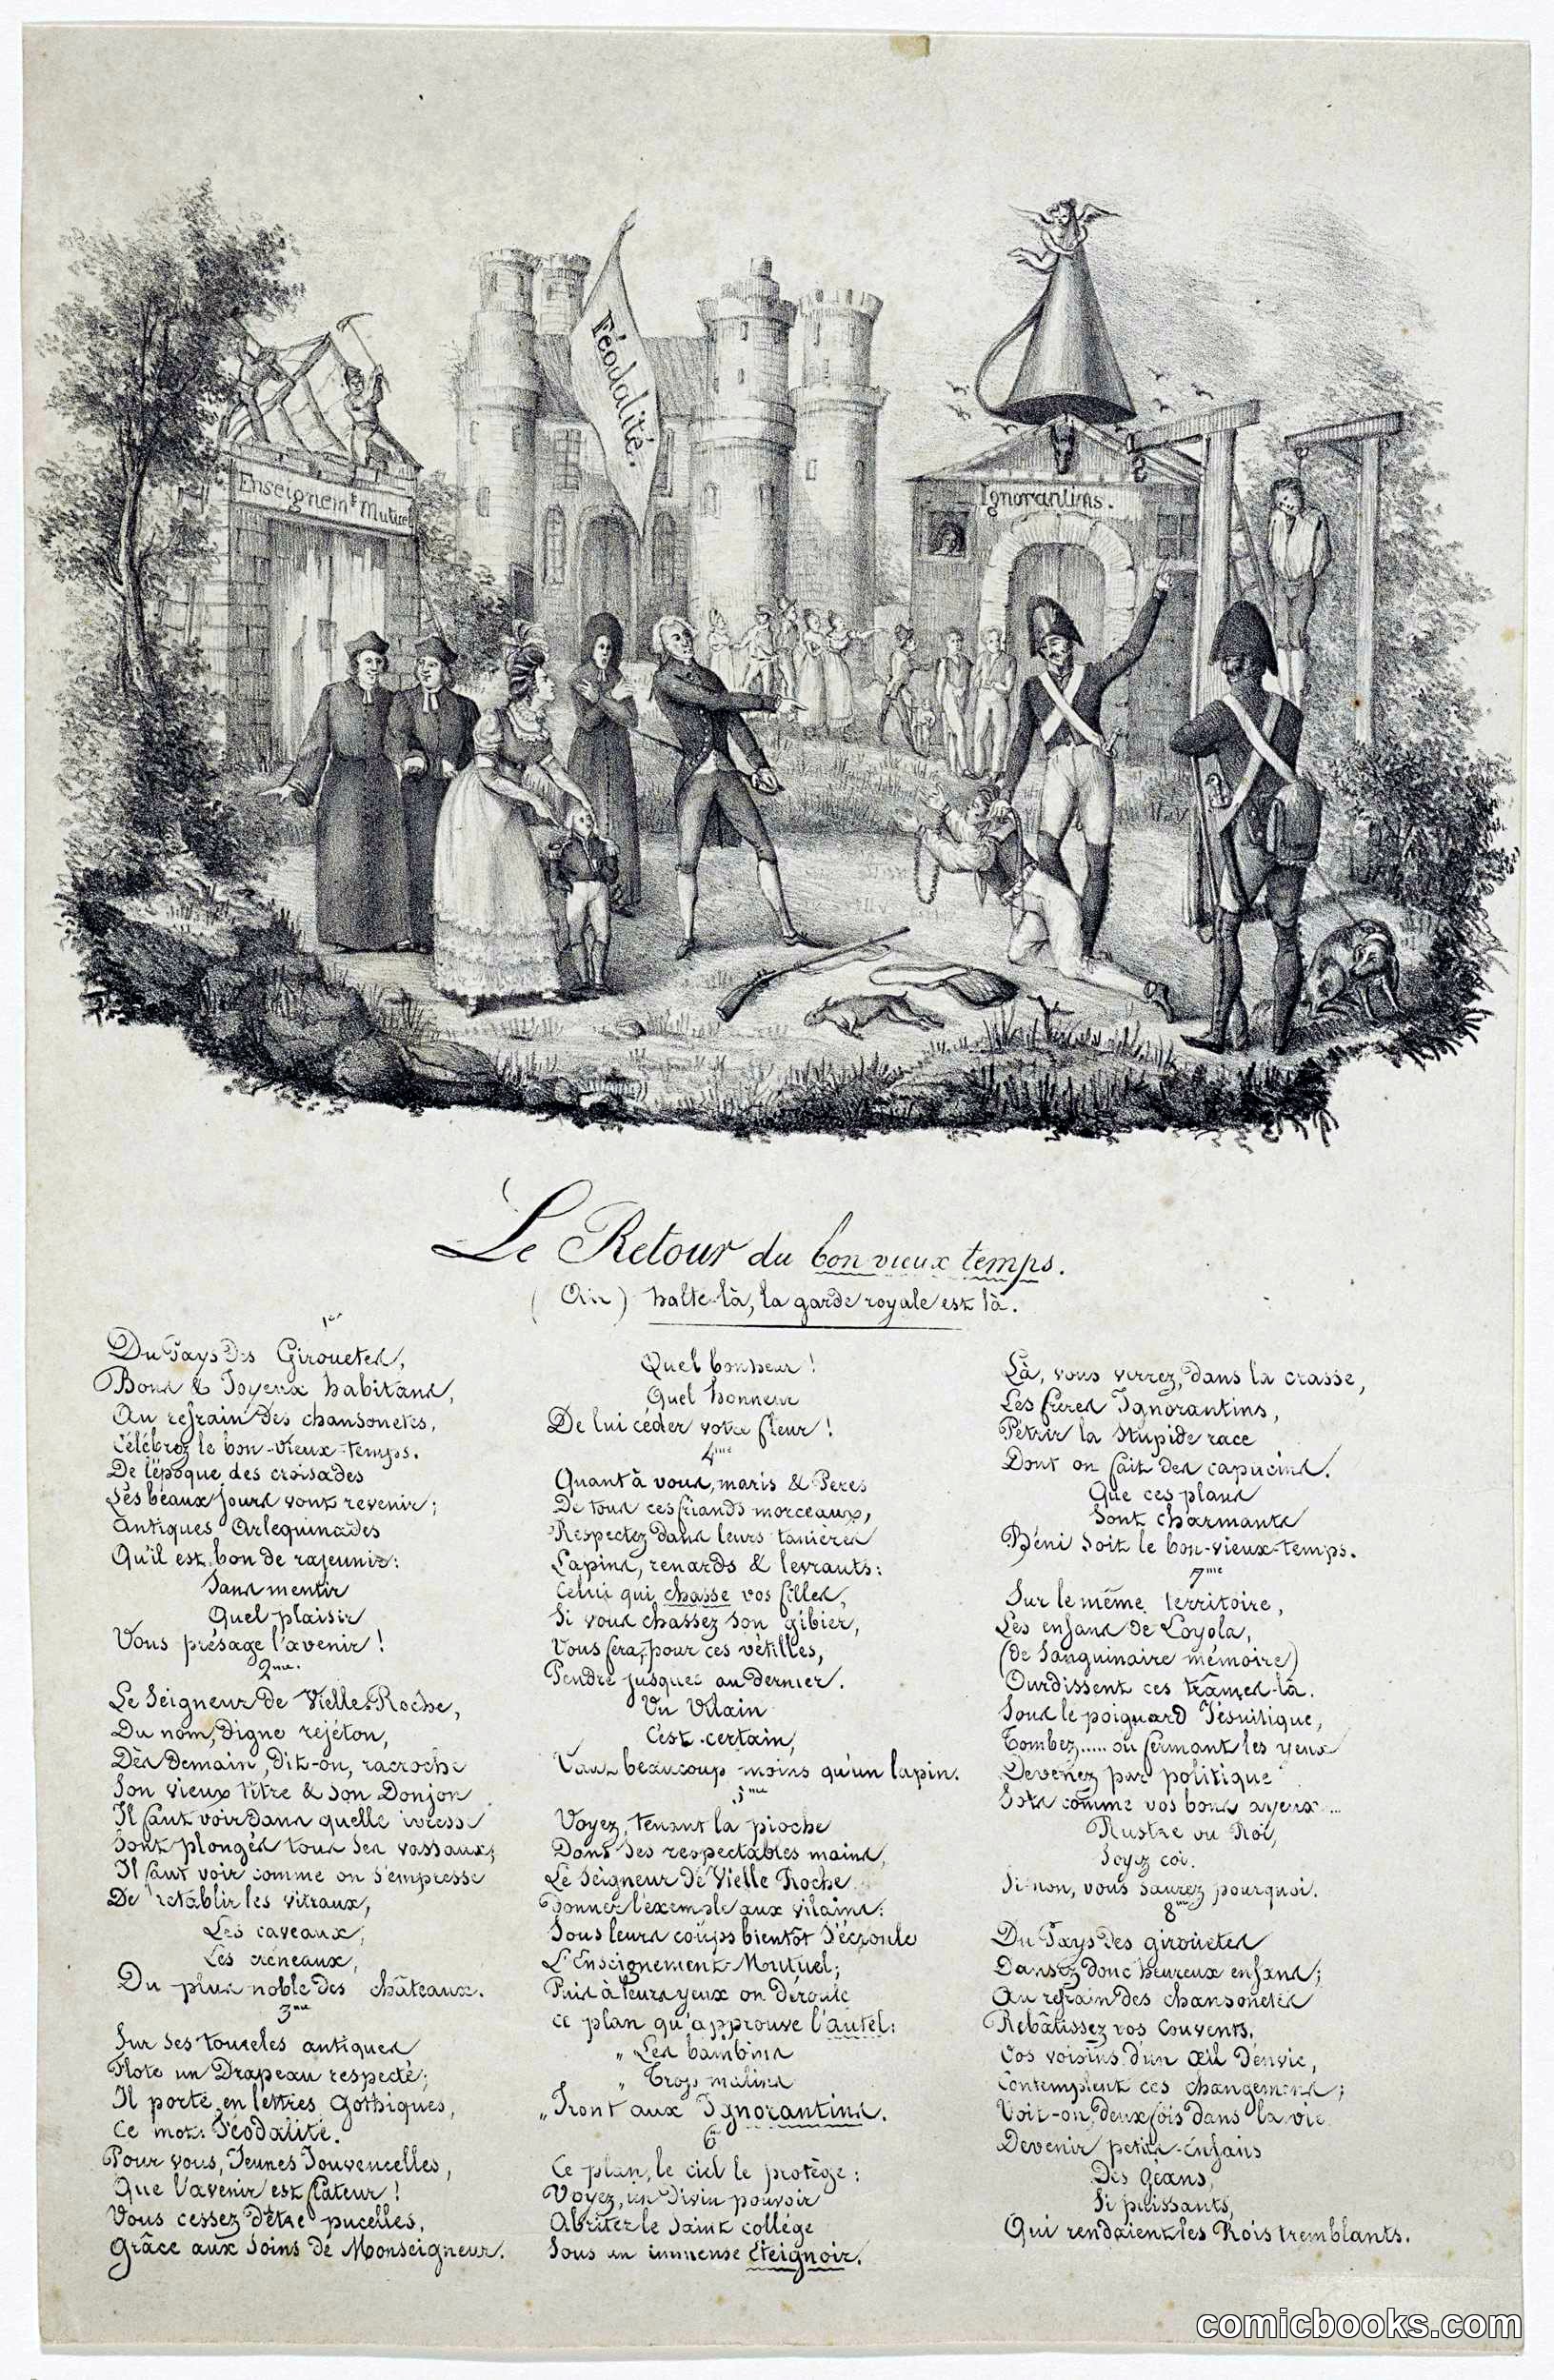 Féodalité.
Enseignem.t Mutuel
Ignorantins.
Le Retour du bon vieux temps.
(Air) halte-là, la garde royale est là.
1er
Du Pays des Girouetes,
Bons & Joyeux habitans,
Au refrain des chansonetes,
Célébrez le bon-vieux-temps.
De l'époque des croisades
Les beaux jours vont revenir;
Antiques Arlequinades
Qu'il est bon de rajeunir:
Sans mentir
Quel plaisir
Vous présage l'avenir!
2me.
Le Seigneur de Vielle-Roche,
Du nom, digne rejéton,
Dès demain, dit-on, racroche
Son vieux titre & son Donjon
Il faut voir dans quelle ivresse
Sont plongés tous ses vassaux;
Il faut voir comme on s'empresse
De rétablir les vitraux,
Les caveaux,
Les créneaux,
Du plus noble des châteaux.
3me
Sur ses toureles antiques
Flote un Drapeau respecté;
Il porte en lettres Gothiques,
Ce mot: Féodalité.
Pour vous, Jeunes Jouvencelles,
Que l'avenir est flateur!
Vous cessez d'être pucelles,
Grâce aux soins de Monseigneur.
Quel bonheur!
Quel honneur
De lui céder votre fleur!
4me
Quant à vous, maris & Peres
De tous ces friands morceaux,
Respectez dans leurs tanières
Lapins, renards & levrauts:
Celui qui chasse vos filles,
Si vous chassez son gibier,
Vous fera, pour ces vétilles,
Pendre jusques au dernier.
Un Vilain
C'est certain,
Vaut beaucoup moins qu'un lapin.
5me
Voyez, tenant la pioche
Dans ses respectables mains,
Le Seigneur de Vielle Roche
Donner l'exemple aux vilains:
Sous leurs coups bientôt s'écroule
L'Enseignement-Mutuel;
Puis à leurs yeux on déroule
Ce plan qu'approuve l'autel:
„ Les bambins
„ Trop malins
„ Iront aux Ignorantins.
6me
Ce plan, le ciel le protège:
Voyez, un divin pouvoir
Abriter le saint collége
Sous un immense Eteignoir.
Là, vous verrez, dans la crasse,
Les frères Ignorantins,
Pétrir la stupide race
Dont on fait des capucins.
Que ces plans
Sont charmants
Béni soit le bon-vieux-temps.
7me
Sur le même territoire,
Les enfans de Loyola,
(de sanguinaire mémoire)
Ourdissent ces trâmes-là.
Sous le poignard Jésuitique,
Tombez..... ou fermant les yeux
Devenez par politique
Sots comme vos bons ayeux...
Rustre ou Roi,
Soyez coi.
Si non, vous saurez pourquoi.
8me
Du Pays des girouetes
Dansez donc heureux enfans;
Au refrain des chansonetes
Rebâtissez vos Couvents.
Vos voisins d'un œil d'envie,
Contemplent ces changemens;
Voit-on, deux fois dans la vie
Devenir petits-Enfans
Des Géans,
Si puissants,
Qui rendaient les Rois tremblants.
comicbooks.com